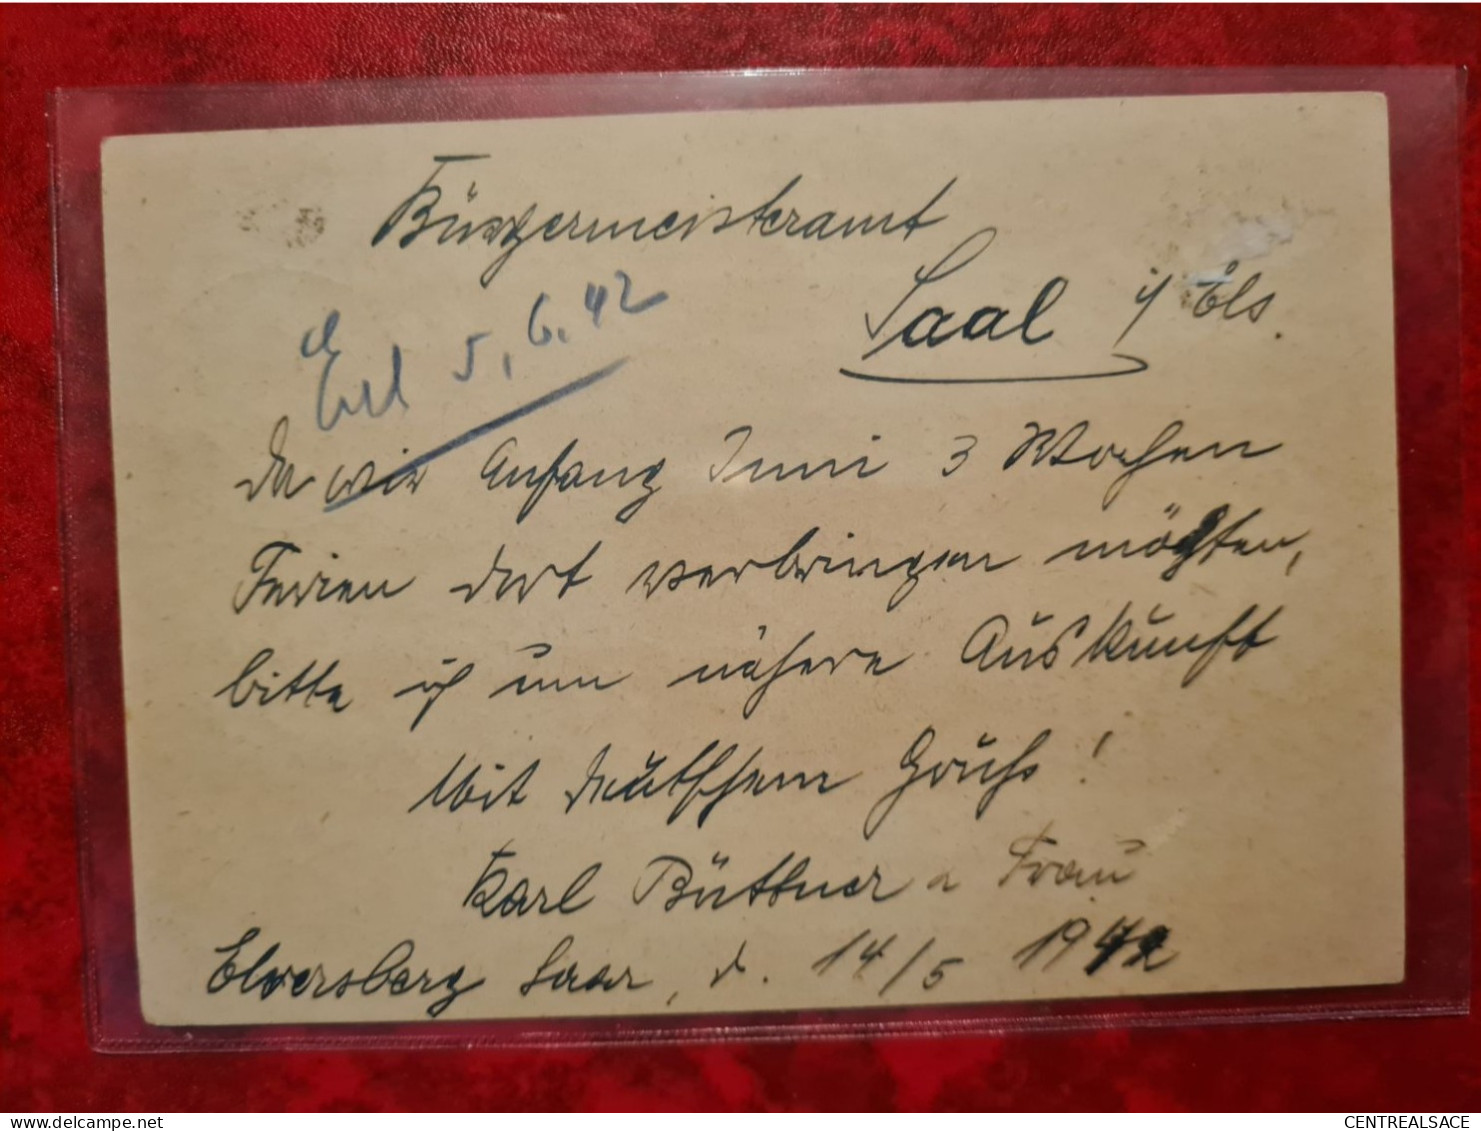 Bürgermeisteramt
Saal i/ Els.
Erl 5.6.42
Da wir Anfang Juni 3 Wochen
Ferien dort verbringen möchten,
bitte ich um nähere Auskunft
Mit deutschem Gruhs!
Karl Büttner u Frau
Elversberg Saar, d. 14/5 1942
delcampe.net
CENTREALSACE